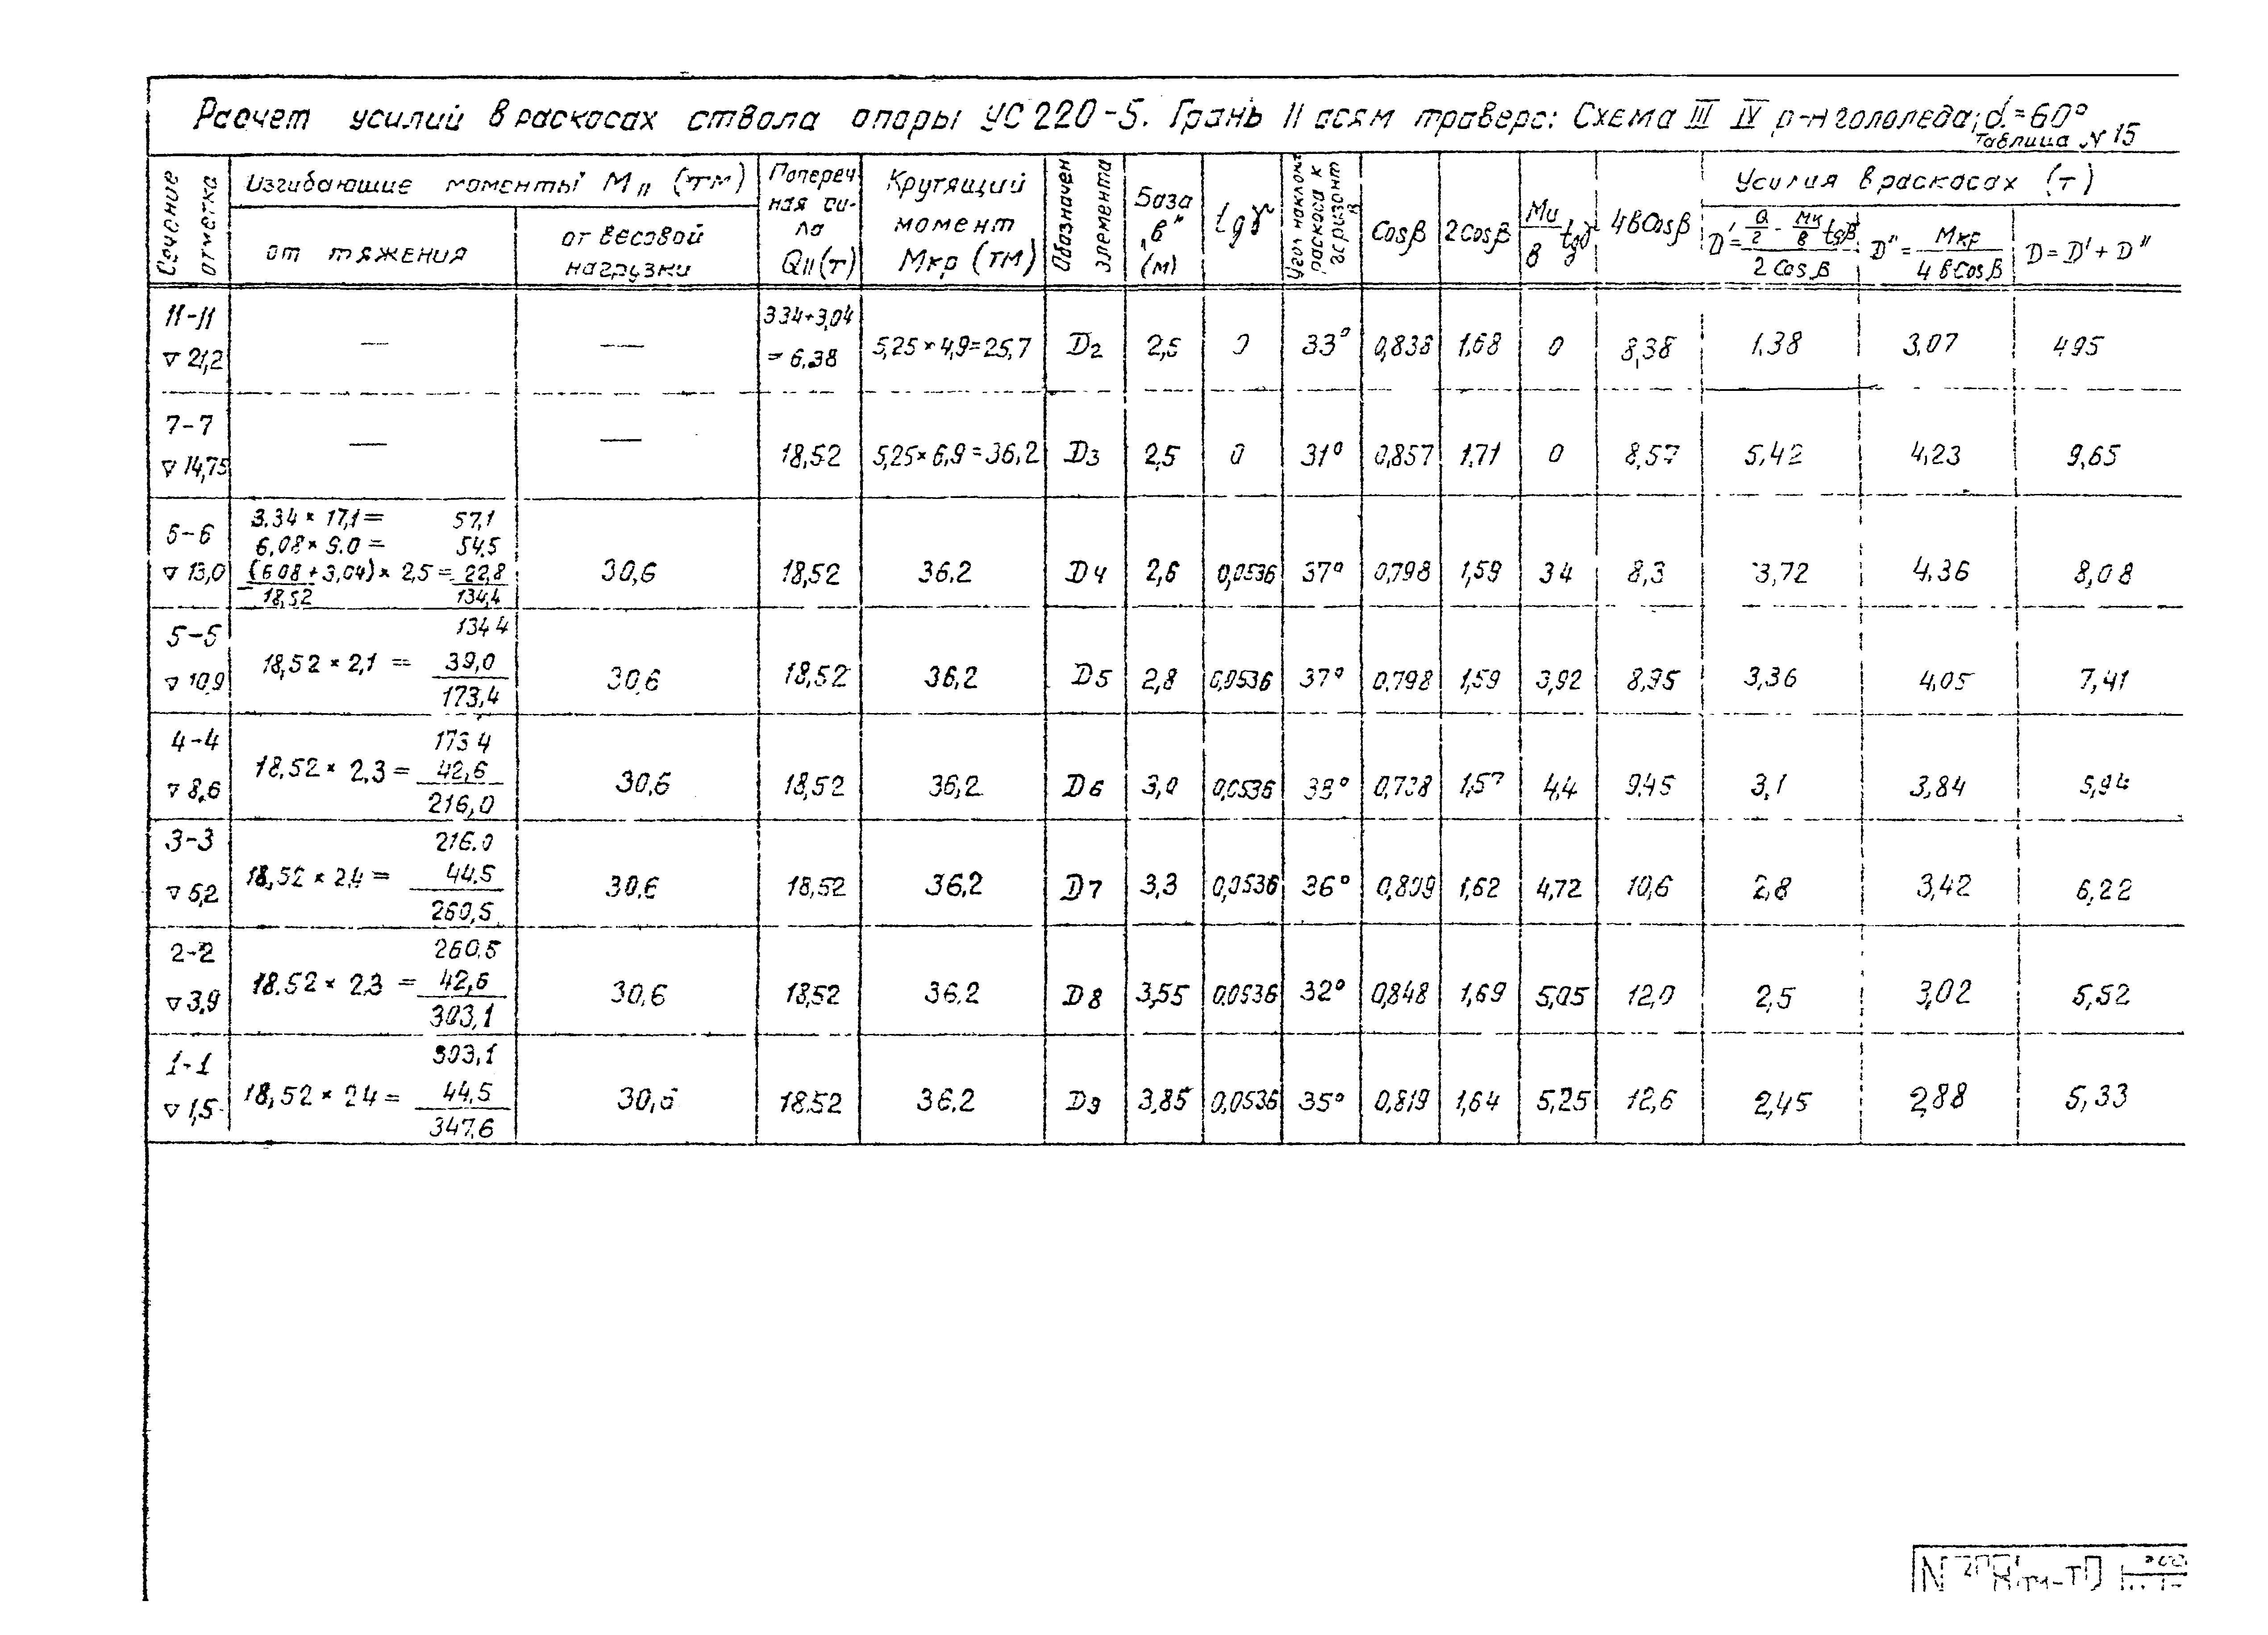 Расчет усилий в раскосах ствола опоры УС 220-5. Грань II осям траверс: Схема III IV р-н гололеда; α=60°
Таблица N 15
Сечение отметка
Изгибающие моменты M II (тм)
от тяжения
от весовой нагрузки
Попереч ная си- ла QII(т)
Крутящий момент Мкр (тм)
Обозначен элемента
База „в" (м)
tgγ
Угол наклона раскоса к горизонт β
Cosβ
2cosβ
Mи/в tgγ
4вCosβ
Усилия в раскосах (т)
D' = (Q/2 - Mи/в tgβ) / 2 Cosβ
D" = Мкр / 4 вCosβ
D = D' + D"
11-11 ▽ 21,2 — — 3.34+3,04 = 6.38 5,25 × 4,9=25,7 D2 2,5 0 33° 0,838 1,68 0 8,38 1,38 3,07 495
7-7 ▽ 14,75 — — 18,52 5,25× 6,9 = 36,2 D3 2,5 0 31° 0,857 1,71 0 8,57 5,42 4,23 9,65
6-6 ▽ 13,0
3.34 × 17,1 = 57,1
6,08 × 9.0 = 54,5
(6.08 + 3,04) × 2,5 = 22,8
18,52 134,4
30,6 18,52 36.2 D4 2,6 0,0536 37° 0,798 1,59 34 8,3 3,72 4.36 8,08
5-5 ▽ 10,9
134 4
18,52 × 2,1 = 39,0
173,4
30,6 18,52 36,2 D5 2,8 0,0536 37° 0,798 1,59 3,92 8,95 3,36 4,05 7,41
4-4 ▽ 8,6
173 4
18.52 × 2,3 = 42,6
216,0
30,6 18,52 36,2 D6 3,0 0,0536 38° 0,738 1,57 4,4 9.45 3,1 3,84 5,94
3-3 ▽ 6,2
216.0
18,52 × 2,4 = 44,5
260,5
30,6 18,52 36,2 D7 3,3 0,0536 36° 0,809 1,62 4,72 10,6 2,8 3,42 6,22
2-2 ▽ 3,9
260,5
18.52 × 2,3 = 42,6
303,1
30,6 18,52 36.2 D8 3,55 0,0536 32° 0,848 1,69 5,05 12,0 2,5 3,02 5,52
1-1 ▽ 1,5
303,1
18,52 × 2 4 = 44,5
347,6
30,6 18.52 36.2 D9 3,85 0,0536 35° 0,819 1,64 5,25 12,6 2,45 2,88 5,33